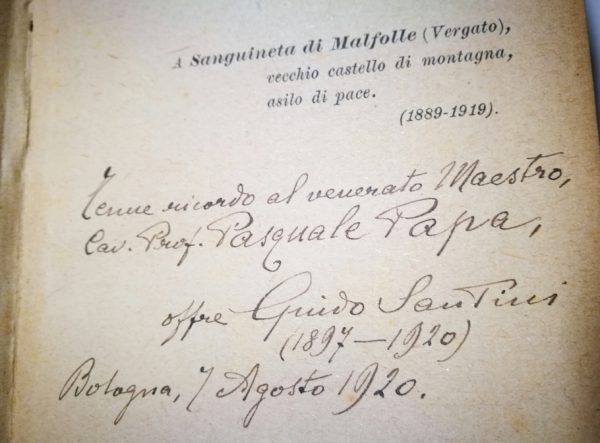 A Sanguineta di Malfolle (Vergato),
vecchio castello di montagna,
asilo di pace.
(1889-1919).
Tenue ricordo al venerato Maestro,
Cav. Prof. Pasquale Papa,
offre Guido Santini
(1897-1920)
Bologna, 7 Agosto 1920.